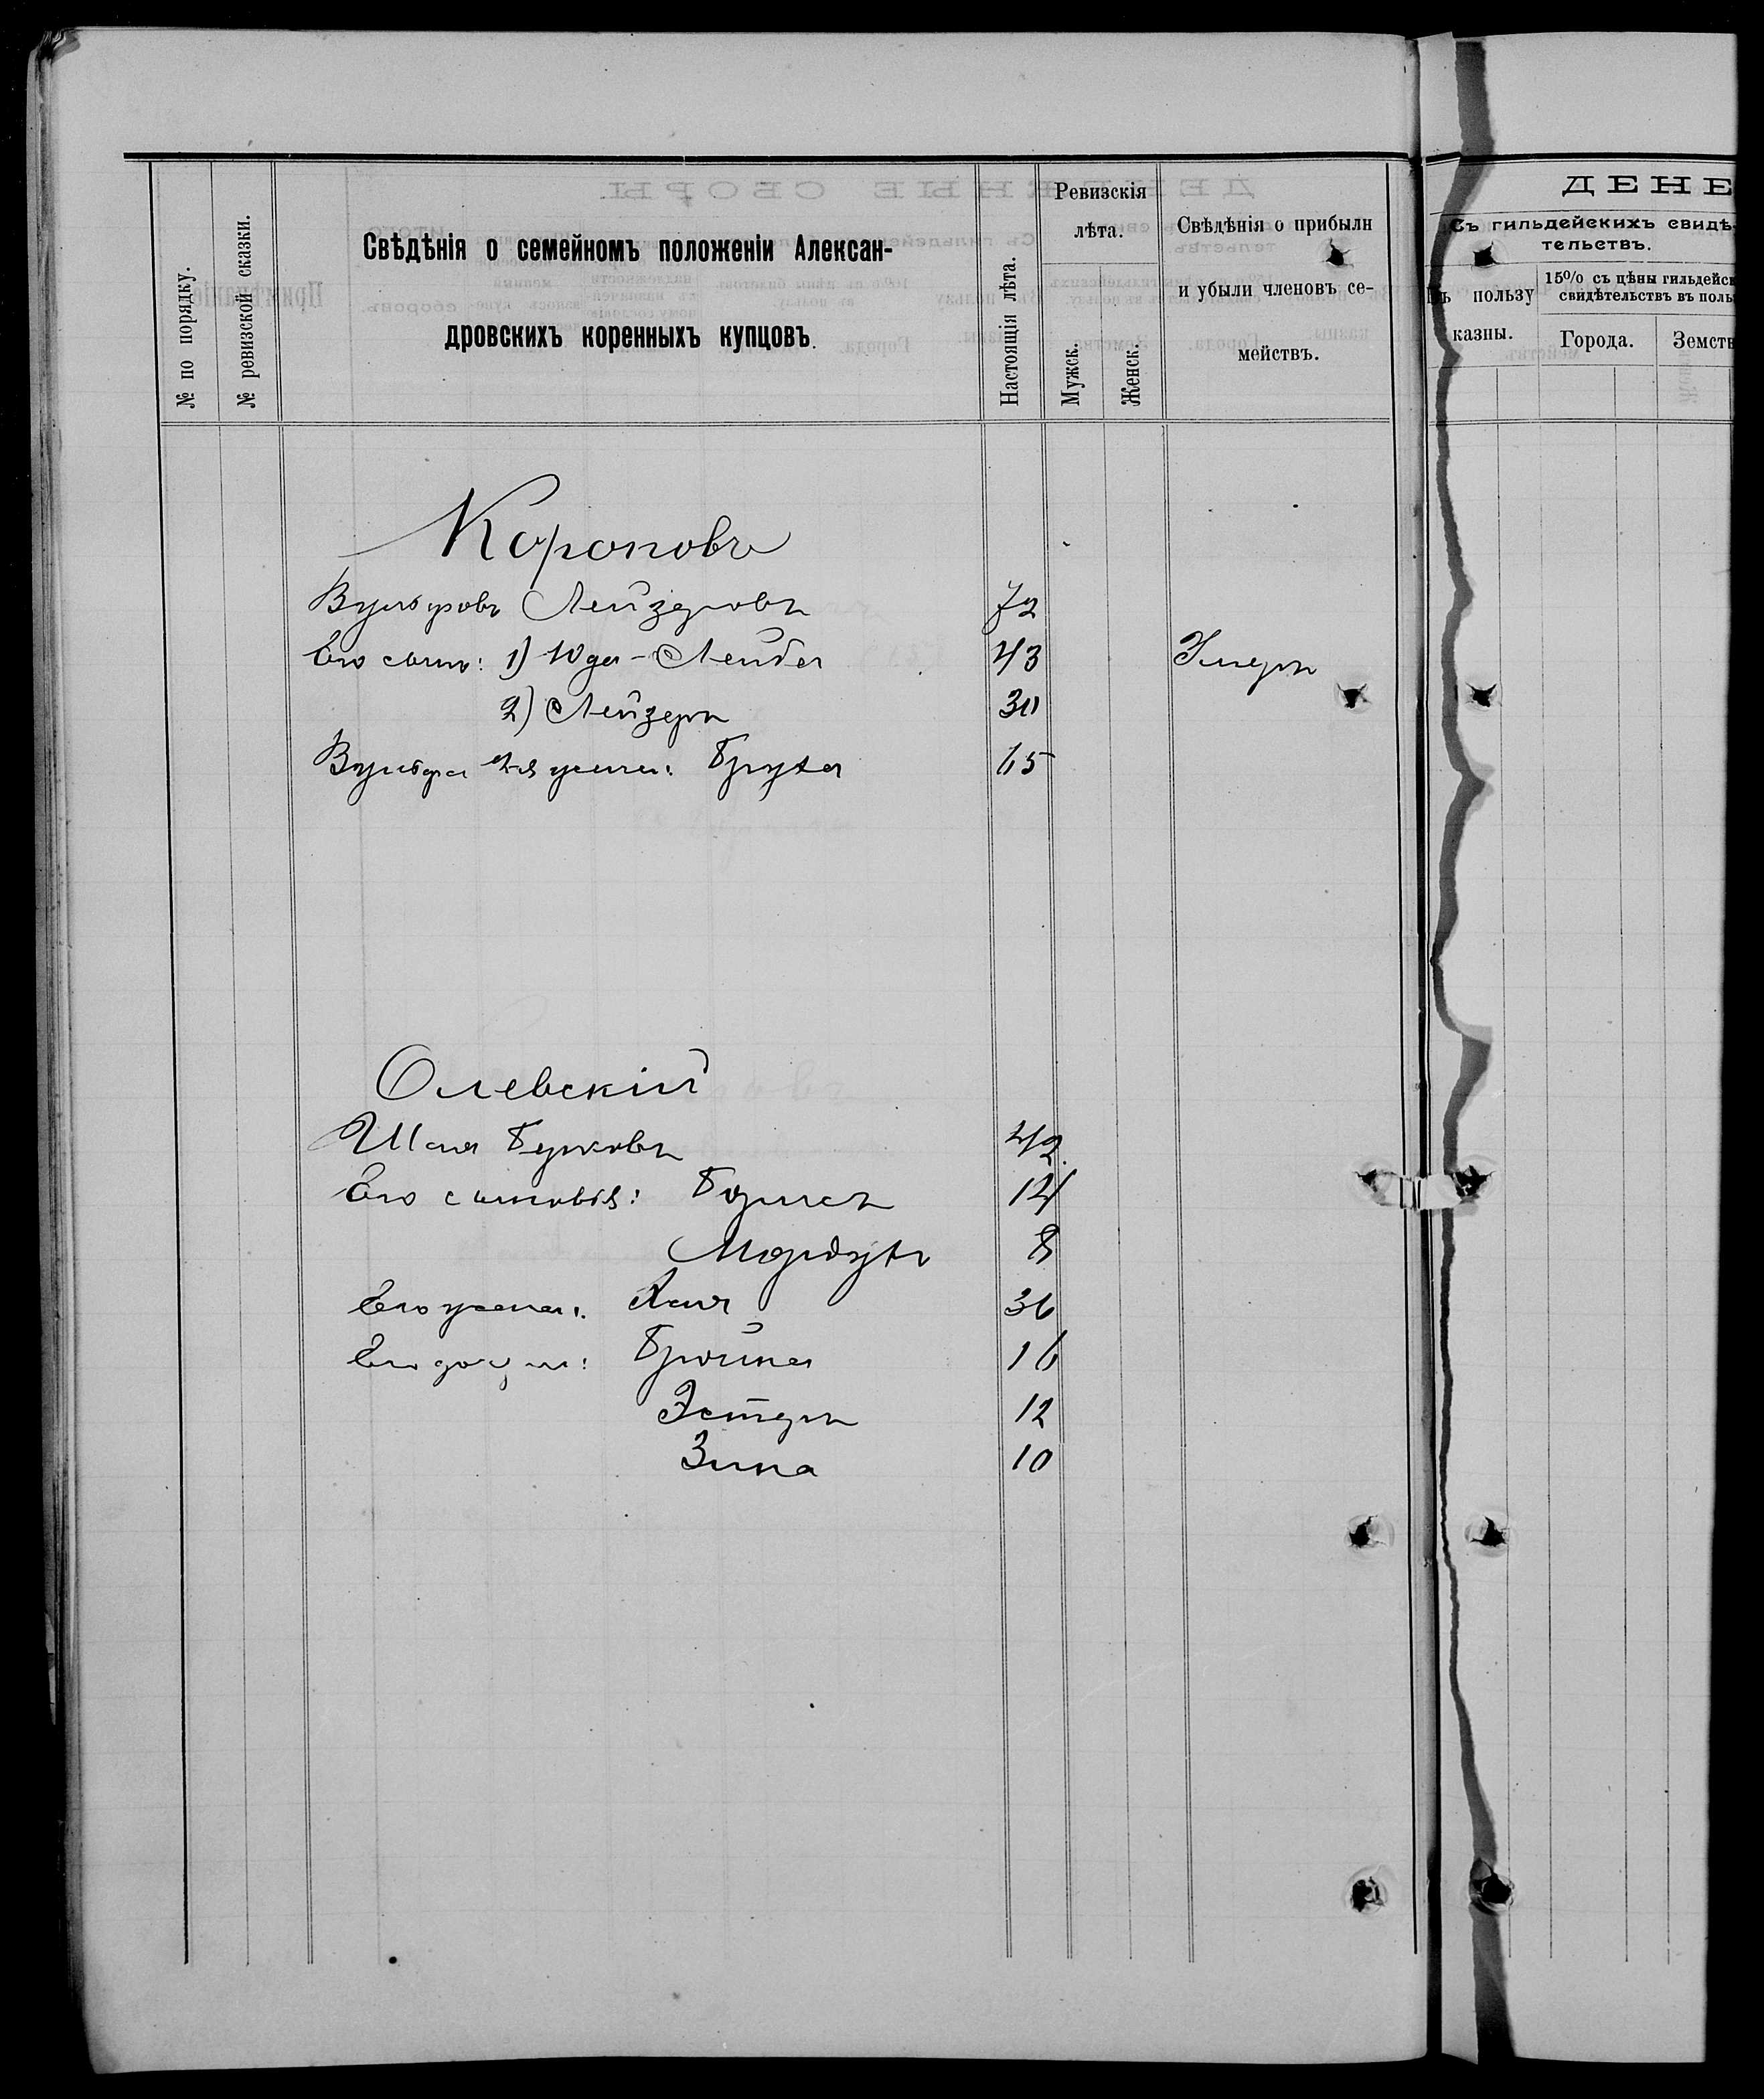 № по порядку.
№ ревизской сказки.
Свѣдѣнія о семейномъ положеніи Алексан-
дровскихъ коренныхъ купцовъ.
Настоящія лѣта.
Ревизскія
лѣта.
Мужск.
Женск.
Свѣдѣнія о прибыли
и убыли членовъ се-
мействъ.
Короповъ
Вульфовъ Лейзеровъ 72
Его сынъ: 1) Юда-Лейба 43 Умеръ
2) Лейзеръ 30
Вульфа 2-я жена: Груня 65
Олевскій
Шая Берковъ 42
Его сыновья: Борисъ 14
Мордухъ 8
Его жена: Хая 36
Его дочери: Бройна 16
Эстеръ 12
Зина 10
ДЕНЕ
Съ гильдейскихъ свидѣ-
тельствъ.
Въ пользу
казны.
15% съ цѣны гильдейск
свидѣтельствъ въ поль
Города.
Земств